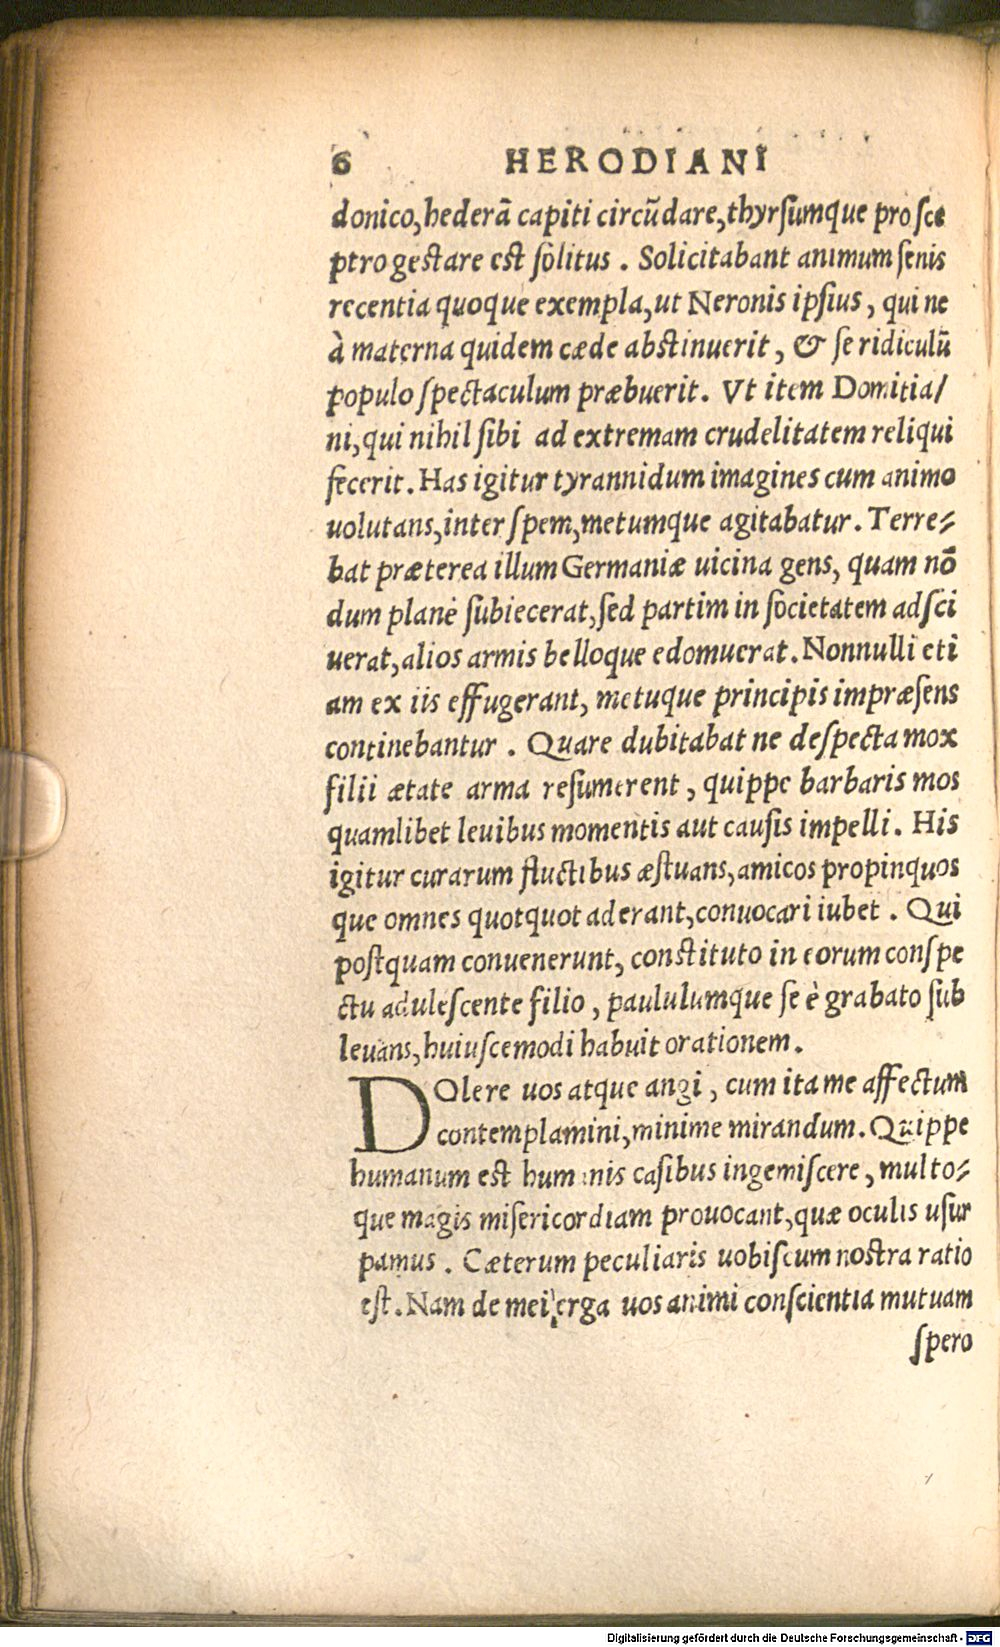 6 HERODIANI
donico,hederā capiti circūdare,thyrſumque pro ſce
ptro geſtare eſt ſolitus . Solicitabant animum ſenis
recentia quoque exempla,ut Neronis ipſius , qui ne
à materna quidem cæde abſtinuerit , & ſe ridiculū
populo ſpectaculum præbuerit. Vt item Domitia/
ni,qui nihil ſibi ad extremam crudelitatem reliqui
fecerit. Has igitur tyrannidum imagines cum animo
uolutans,inter ſpem,metumque agitabatur. Terre⸗
bat præterea illum Germaniæ uicina gens, quam nō
dum planè ſubiecerat,ſed partim in ſocietatem adſci
uerat,alios armis belloque edomuerat. Nonnulli eti
am ex iis effugerant, metuque principis impræſens
continebantur . Quare dubitabat ne deſpecta mox
filii ætate arma reſumerent , quippe barbaris mos
quamlibet leuibus momentis aut cauſis impelli. His
igitur curarum fluctibus æſtuans,amicos propinquos
que omnes quotquot aderant,conuocari iubet . Qui
poſtquam conuenerunt, conſtituto in eorum conſpe
ctu aduleſcente filio , paululumque ſe è grabato ſub
leuans,huiuſcemodi habuit orationem.
DOlere uos atque angi , cum ita me affectum
contemplamini,minime mirandum. Quippe
humanum eſt humanis caſibus ingemiſcere , multo⸗
que magis miſericordiam prouocant,quæ oculis uſur
pamus . Cæterum peculiaris uobiſcum noſtra ratio
eſt. Nam de mei erga uos animi conſcientia mutuam
ſpero
Digitalisierung gefördert durch die Deutsche Forschungsgemeinschaft - DFG